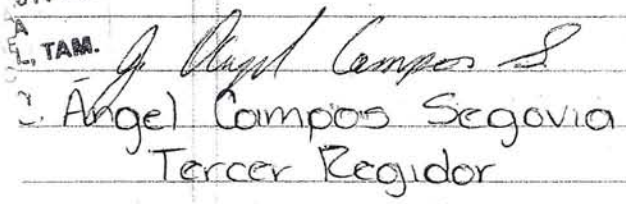 L, TAM.
J. Angel Campos S
C. Ángel Campos Segovia
Tercer Regidor